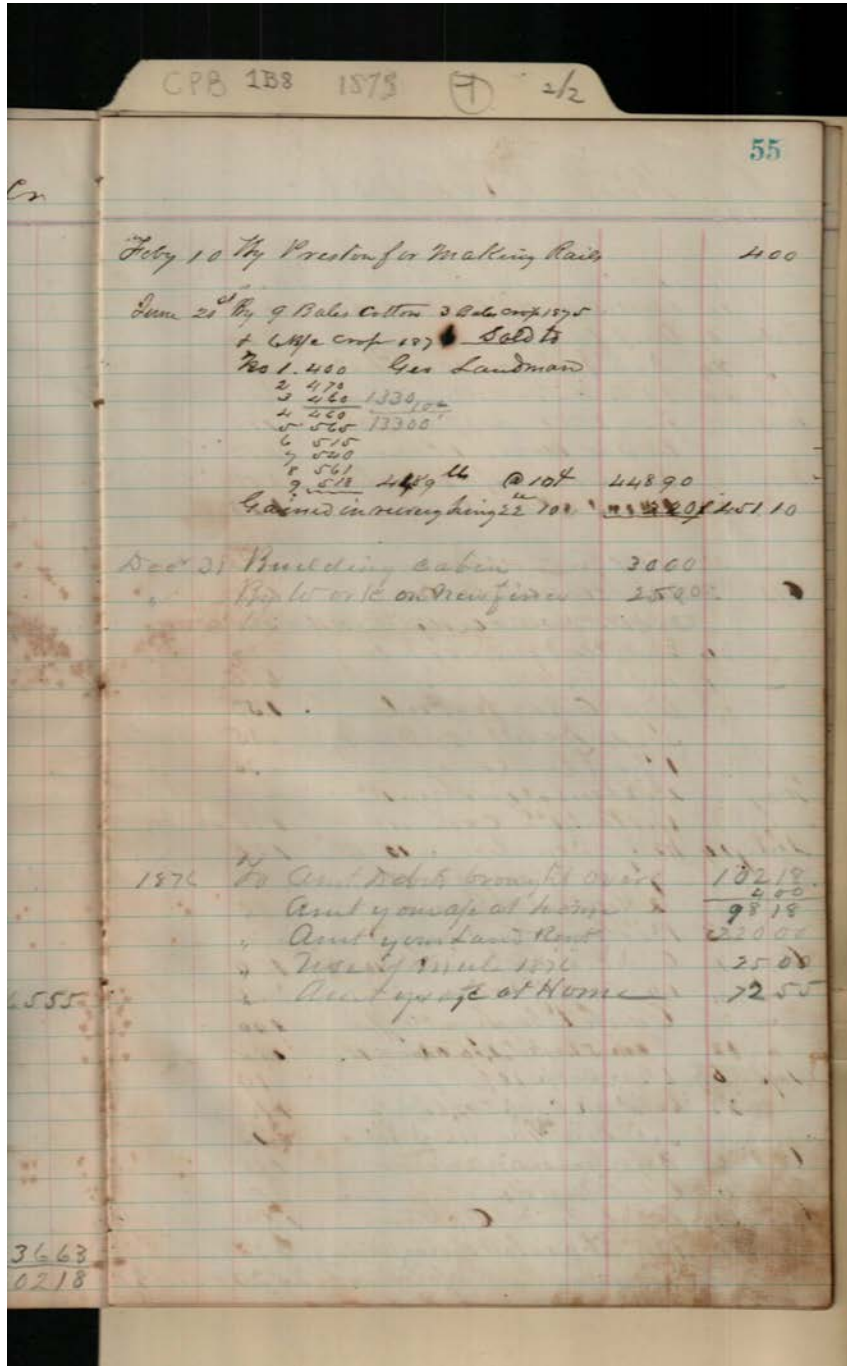 CPB 1B8 1873 T 2/2
55
Cr
Feby 10 By Preston for Making Rails 400
June 20 By 9 Bales Cotton 3 Bales crop 1875
& 6 B/c crop 187 Sold to
No 1. 400 Geo Landman
2 470
3 460 1330
4 460 10¢
5 565 13300
6 515
7 520
8 561
9 518 4489 lb @ 10¢ 44890
Gained in reweighing 22 lb 10¢ 220 451 10
Decr Building Cabin 3000
" By Work on New fence 2500
1876 To Amt Debt brought over 10218
400
" Amt your a/c at home 9818
" Amt your Land Rent 22000
" Use of Mule 1876 2500
" Amt yr a/c at Home 7255
6555
3663
0218